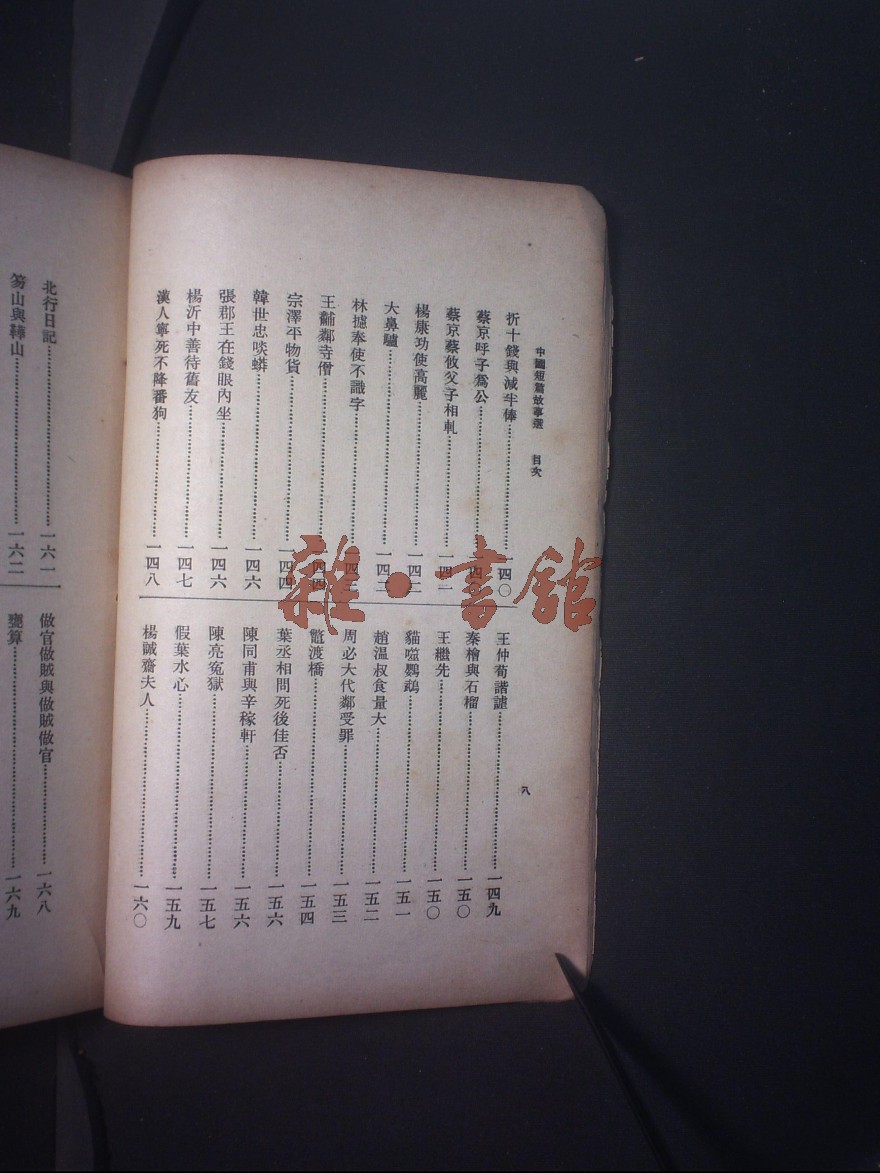 中國短篇故事選 目次
折十錢與減半俸……一四〇
蔡京呼子爲公……一四
蔡京蔡攸父子相軋……一四二
楊康功使高麗……一四二
大鼻驢……一四二
林攄奉使不識字……一四三
王黼鄰寺僧……一四四
宗澤平物貨……一四四
韓世忠啖蟒……一四六
張郡王在錢眼內坐……一四六
楊沂中善待舊友……一四七
漢人寧死不降番狗……一四八
王仲荀諧謔……一四九
秦檜與石榴……一五〇
王繼先……一五〇
貓噬鸚鵡……一五一
趙溫叔食量大……一五二
周必大代鄰受罪……一五三
渡橋……一五四
葉丞相問死後佳否……一五六
陳同甫與辛稼軒……一五六
陳亮冤獄……一五七
假葉水心……一五九
楊誠齋夫人……一六〇
八
北行日記……一六一
山與山……一六二
做官做賊與做賊做官……一六八
甕算……一六九
雜·書館